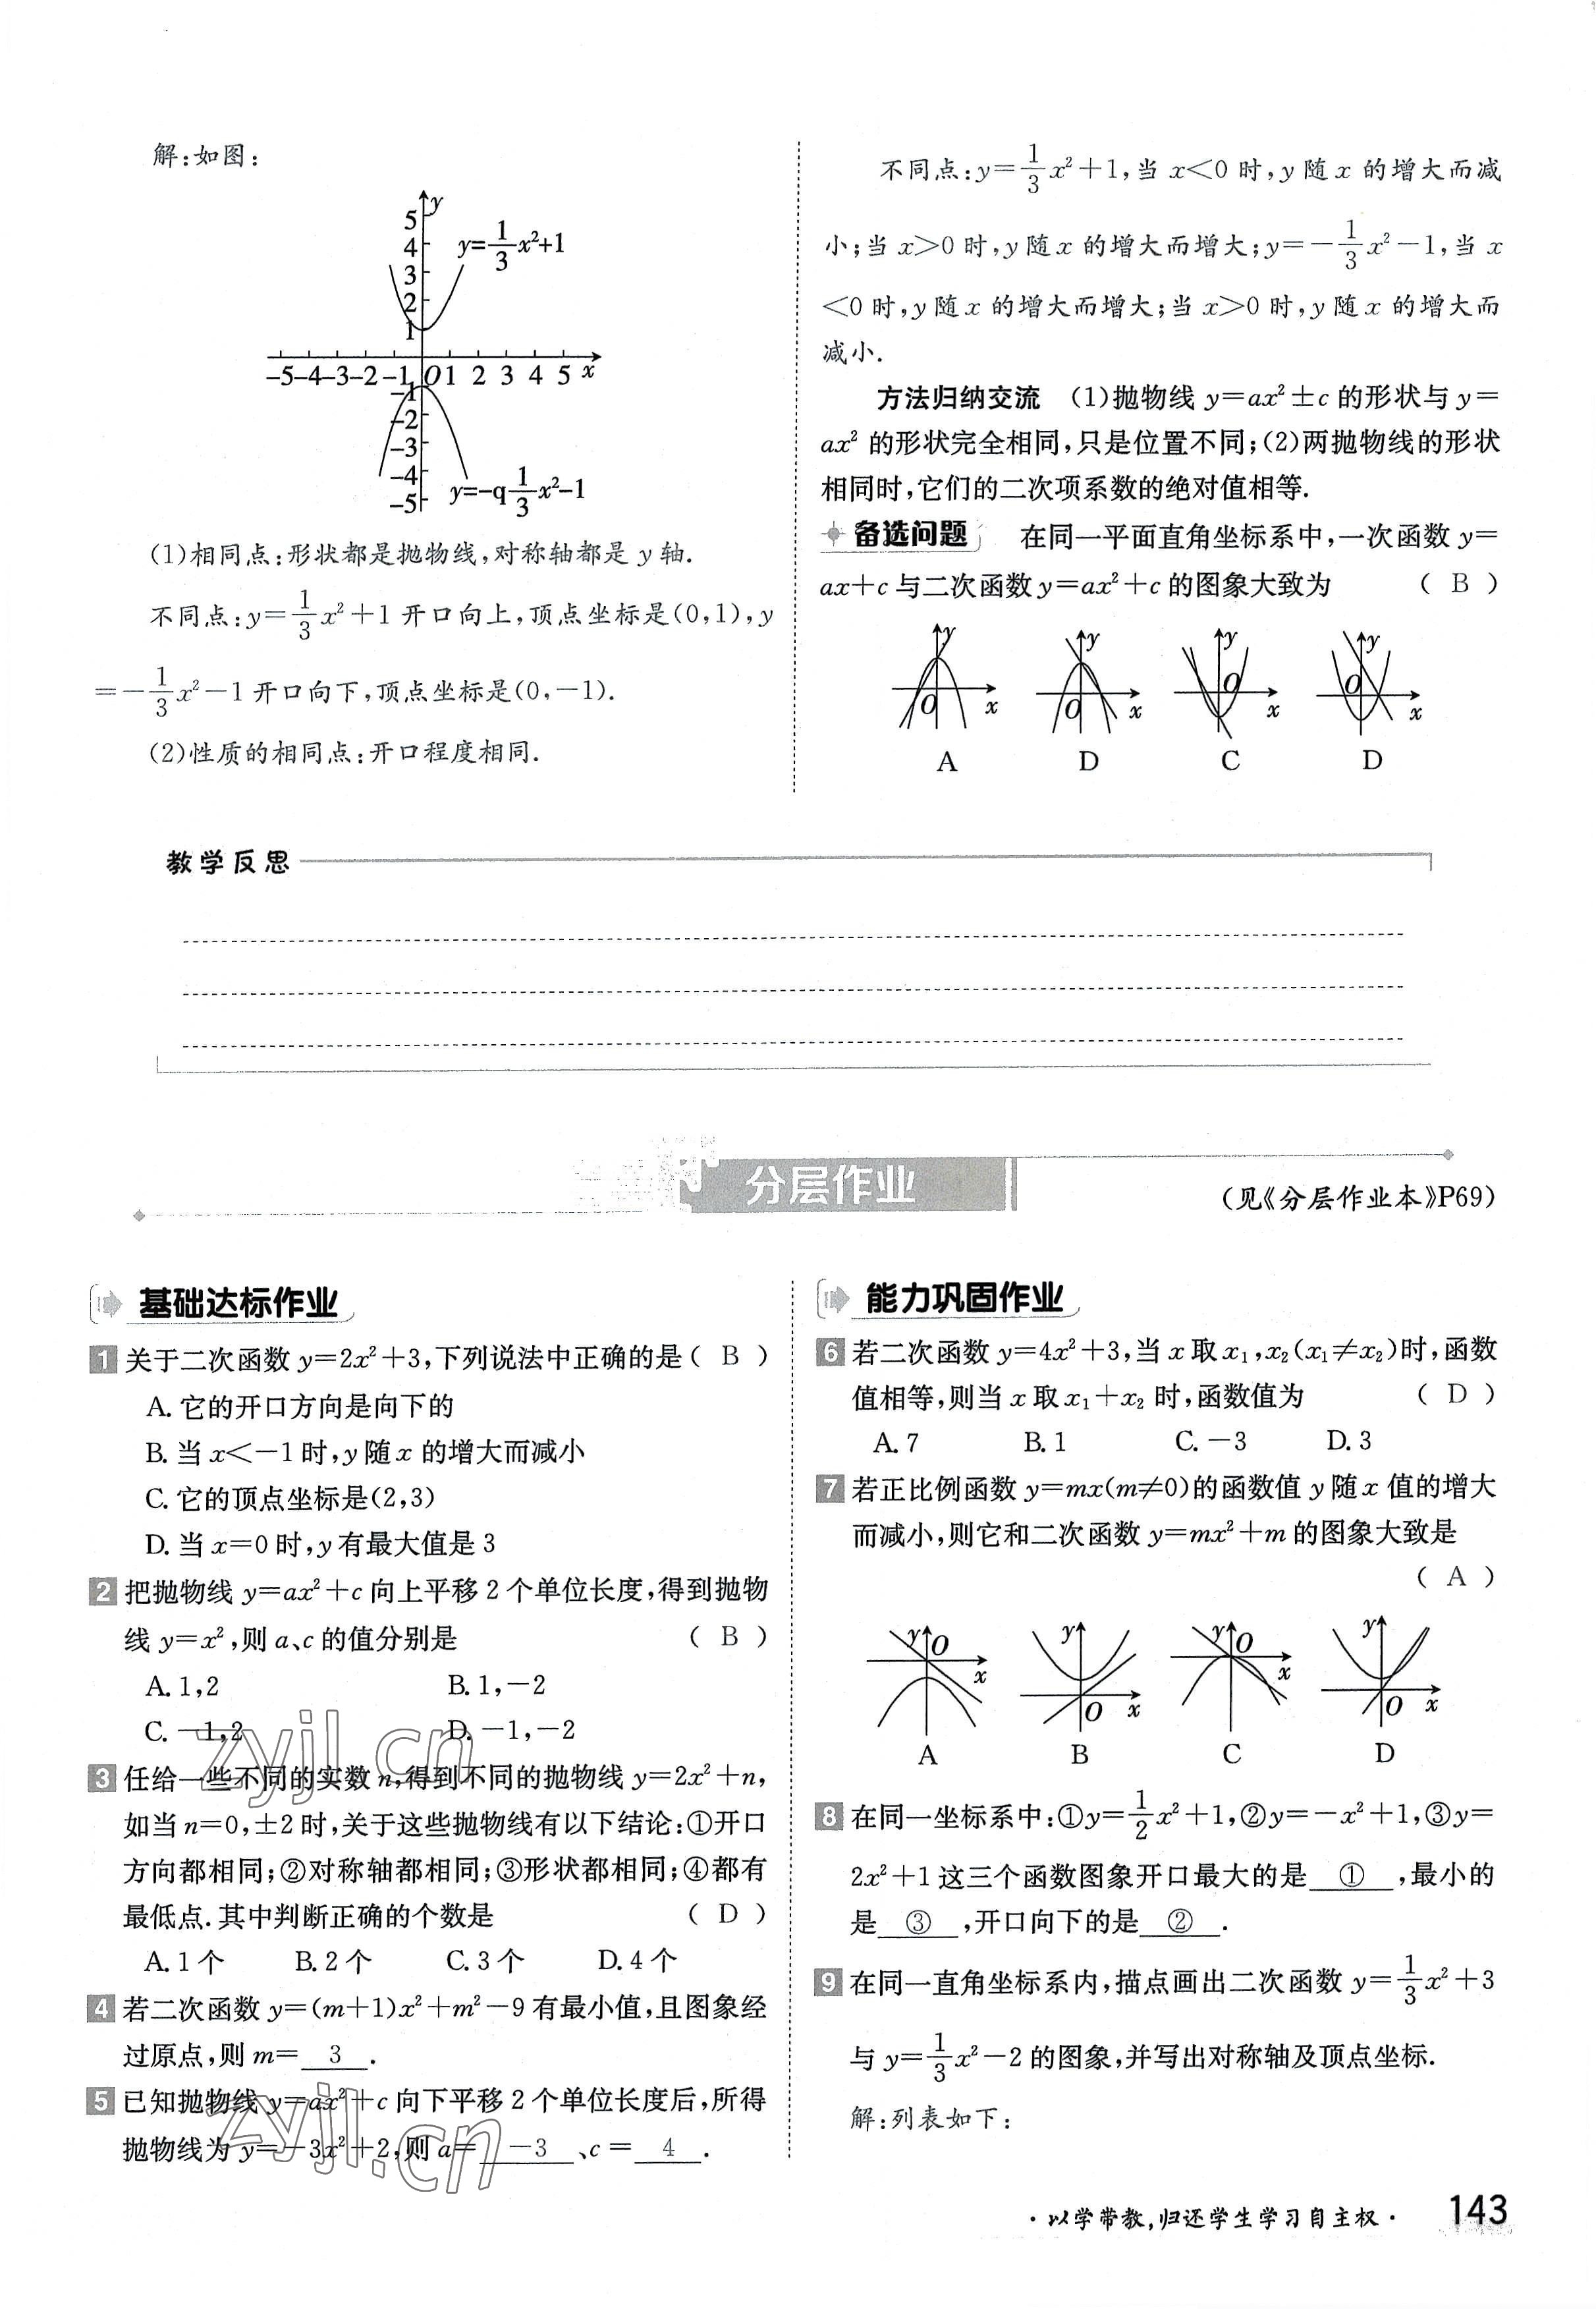 解:如图:
y
5
4
3
2
1
y=1/3x²+1
-5-4-3-2-1 O 1 2 3 4 5 x
-1
-2
-3
-4
-5
y=-q 1/3x²-1
(1)相同点:形状都是抛物线,对称轴都是 y 轴.
不同点:y=1/3x²+1 开口向上,顶点坐标是(0,1),y
=-1/3x²-1 开口向下,顶点坐标是(0,-1).
(2)性质的相同点:开口程度相同.
不同点:y=1/3x²+1,当 x<0 时,y 随 x 的增大而减
小;当 x>0 时,y 随 x 的增大而增大;y=-1/3x²-1,当 x
<0 时,y 随 x 的增大而增大;当 x>0 时,y 随 x 的增大而
减小.
方法归纳交流 (1)抛物线 y=ax²±c 的形状与 y=
ax² 的形状完全相同,只是位置不同;(2)两抛物线的形状
相同时,它们的二次项系数的绝对值相等.
备选问题 在同一平面直角坐标系中,一次函数 y=
ax+c 与二次函数 y=ax²+c 的图象大致为 ( B )
y O x y O x y O x y O x
A D C D
教学反思
分层作业
(见《分层作业本》P69)
基础达标作业
1 关于二次函数 y=2x²+3,下列说法中正确的是( B )
A. 它的开口方向是向下的
B. 当 x<-1 时,y 随 x 的增大而减小
C. 它的顶点坐标是(2,3)
D. 当 x=0 时,y 有最大值是 3
2 把抛物线 y=ax²+c 向上平移 2 个单位长度,得到抛物
线 y=x²,则 a、c 的值分别是 ( B )
A. 1,2 B. 1,-2
C. -1,2 D. -1,-2
3 任给一些不同的实数 n,得到不同的抛物线 y=2x²+n,
如当 n=0,±2 时,关于这些抛物线有以下结论:①开口
方向都相同;②对称轴都相同;③形状都相同;④都有
最低点.其中判断正确的个数是 ( D )
A. 1 个 B. 2 个 C. 3 个 D. 4 个
4 若二次函数 y=(m+1)x²+m²-9 有最小值,且图象经
过原点,则 m= 3 .
5 已知抛物线 y=ax²+c 向下平移 2 个单位长度后,所得
抛物线为 y=-3x²+2,则 a= -3 、c= 4 .
zyjl.cn
zyjl.cn
能力巩固作业
6 若二次函数 y=4x²+3,当 x 取 x₁,x₂(x₁≠x₂)时,函数
值相等,则当 x 取 x₁+x₂ 时,函数值为 ( D )
A. 7 B. 1 C. -3 D. 3
7 若正比例函数 y=mx(m≠0)的函数值 y 随 x 值的增大
而减小,则它和二次函数 y=mx²+m 的图象大致是
( A )
y O x y O x y O x y O x
A B C D
8 在同一坐标系中:①y=1/2x²+1,②y=-x²+1,③y=
2x²+1 这三个函数图象开口最大的是 ① ,最小的
是 ③ ,开口向下的是 ② .
9 在同一直角坐标系内,描点画出二次函数 y=1/3x²+3
与 y=1/3x²-2 的图象,并写出对称轴及顶点坐标.
解:列表如下:
·以学带教,归还学生学习自主权· 143